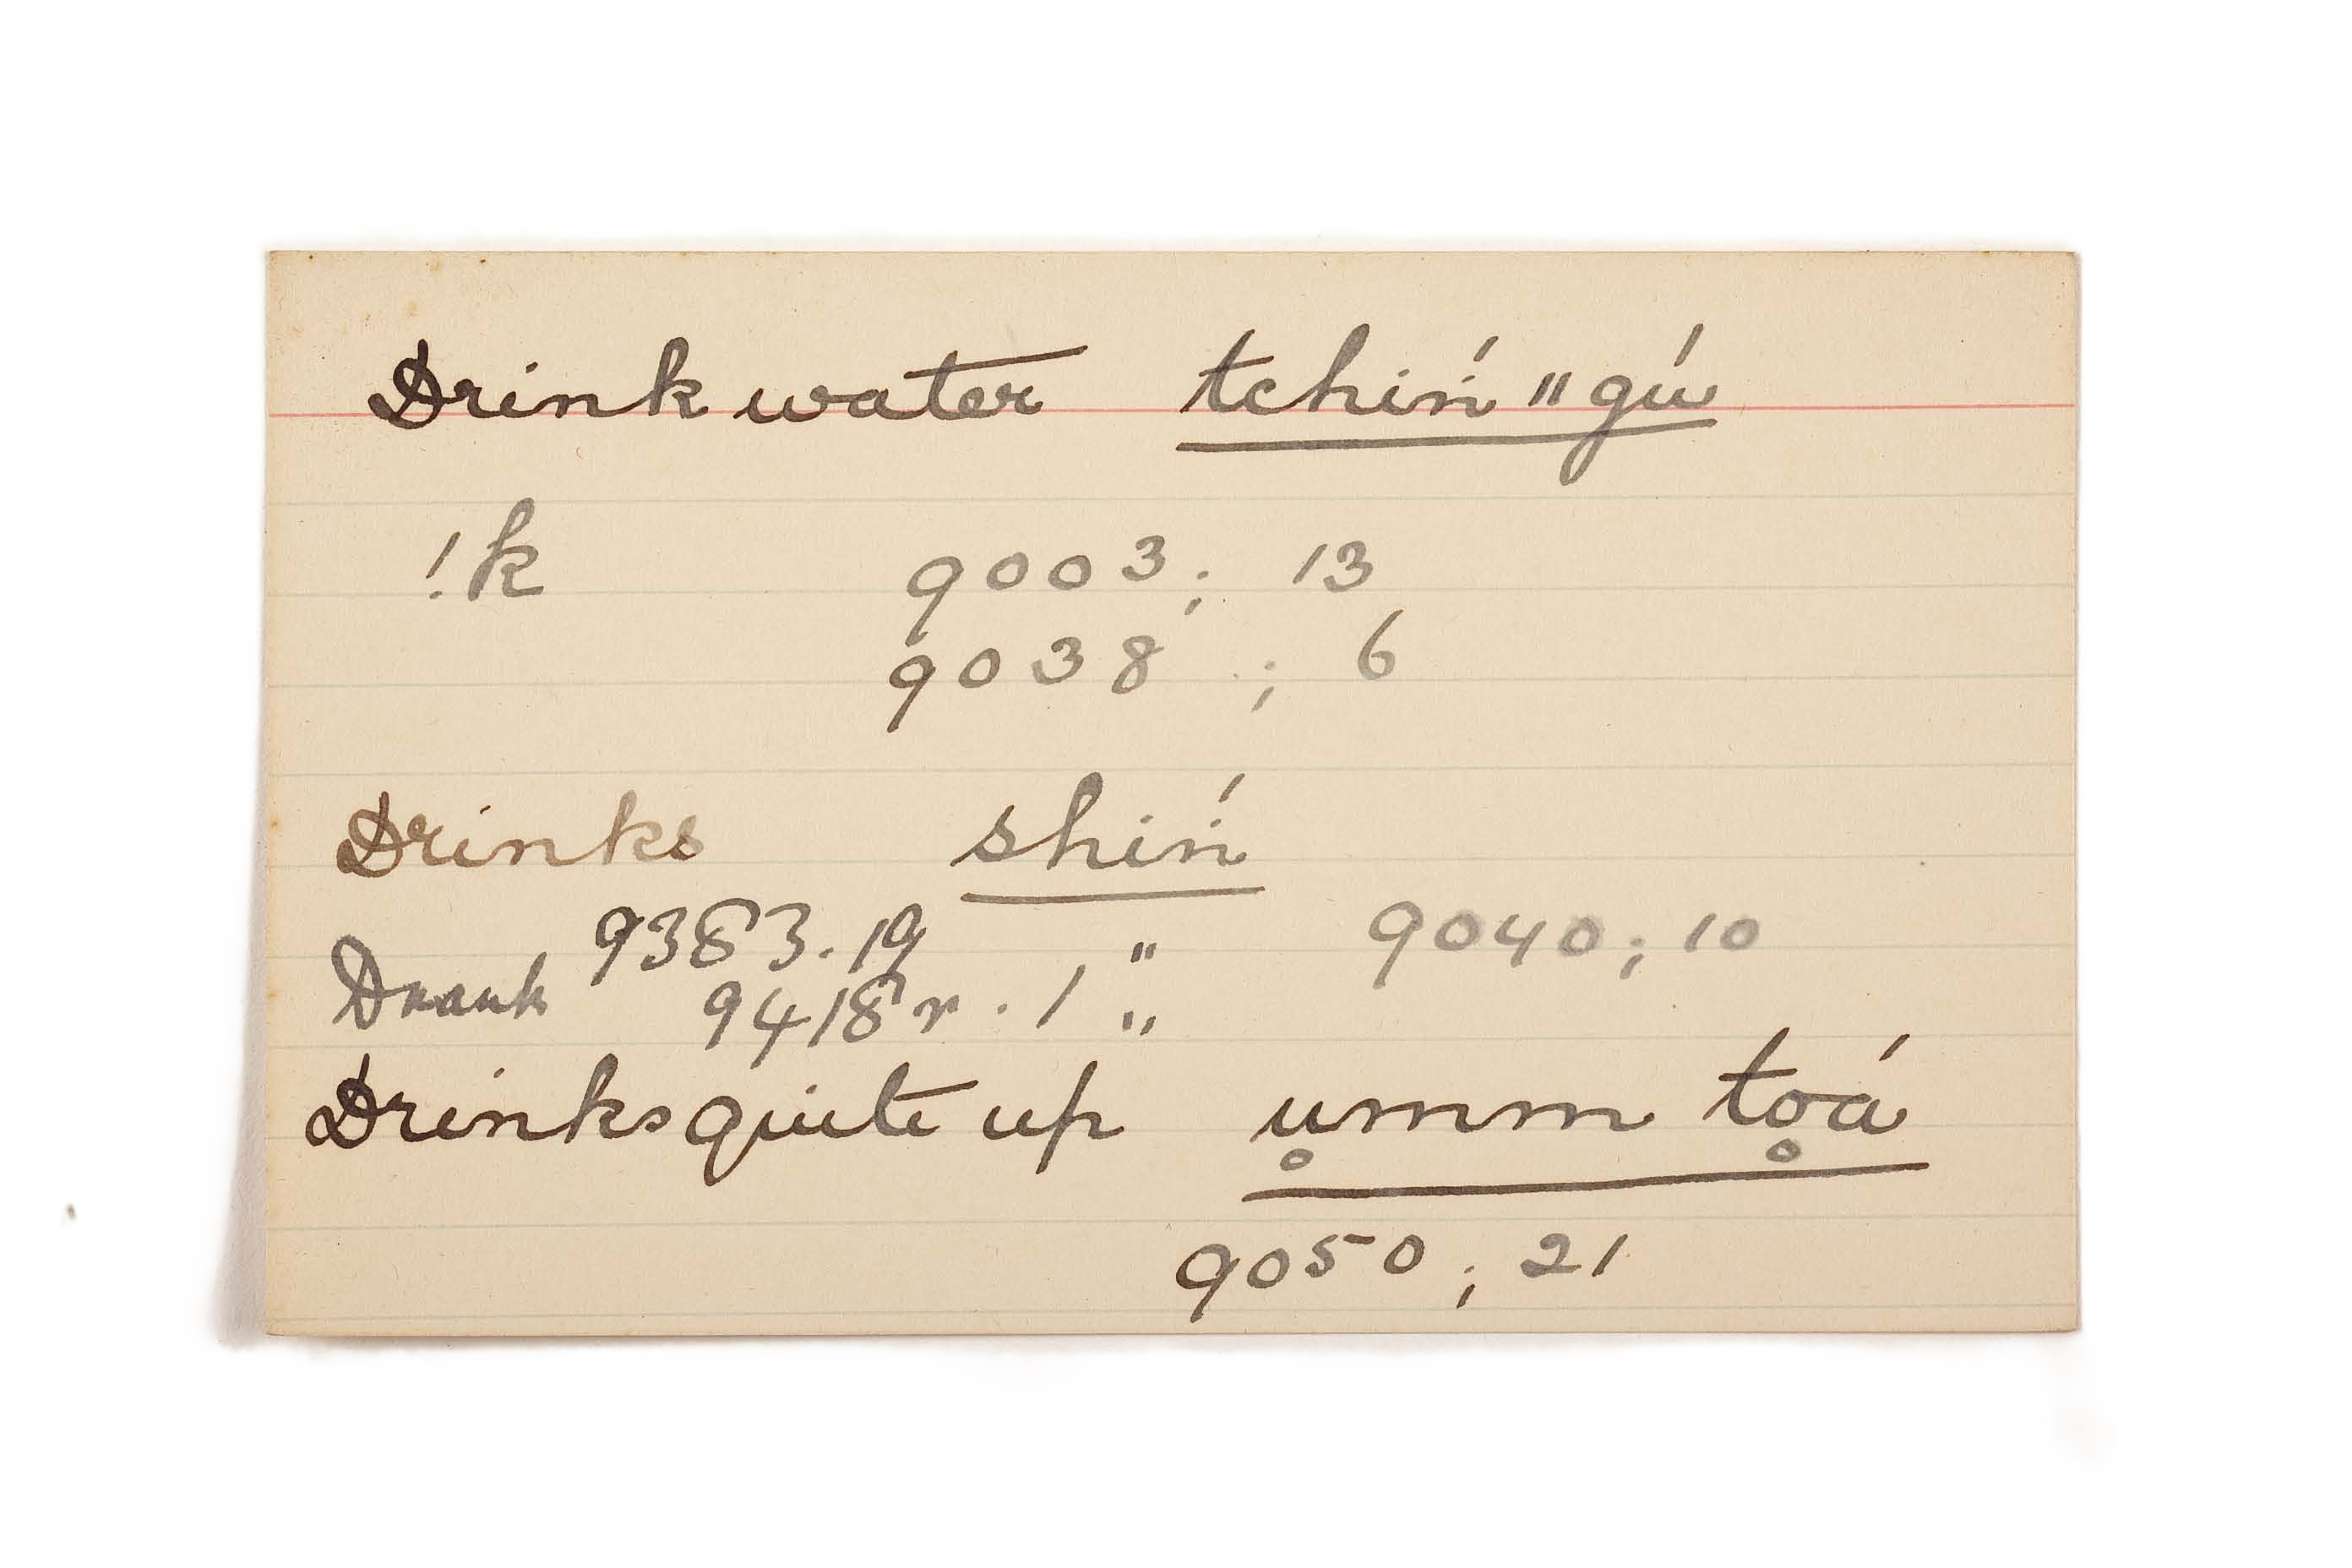 Drink water tchiń ǁ gú
!k 9003; 13
9038 ; 6
Drinks shiń
9383.19 " 9040; 10
Drank 9418 r. 1 "
Drinks quite up u̥mm to̥á
9050; 21